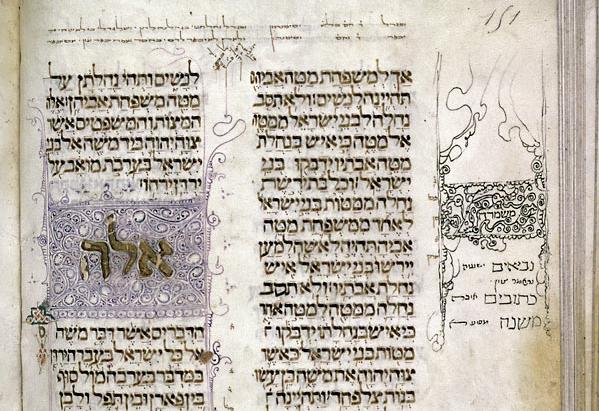 אך למשפחת מטה אביהם
תהיינה לנשים ולא תסב
נחלה לבני ישראל ממטה
אל מטה כי איש בנחלת
מטה אבתיו ידבקו בני
ישראל וכל בת ירשת
נחלה ממטות בני ישראל
לאחד ממשפחת מטה
אביה תהיה לאשה למען
יירשו בני ישראל איש
נחלת אבתיו ולא תסב
נחלה ממטה למטה אחר
כי איש בנחלתו ידבקו
מטות בני ישראל כאשר
צוה יהוה את משה כן עשו
בנות צלפחד ותהיינה
לנשים ותהי נחלתן על
מטה משפחת אביהן אלה
המצות והמשפטים אשר
צוה יהוה ביד משה אל בני
ישראל בערבת מואב על
ירדן ירחו
אלה
הדברים אשר דבר משה
אל כל ישראל בעבר הירדן
במדבר בערבה מול סוף
בין פארן ובין תפל ולבן
151
נביאים
כתובים
משנה